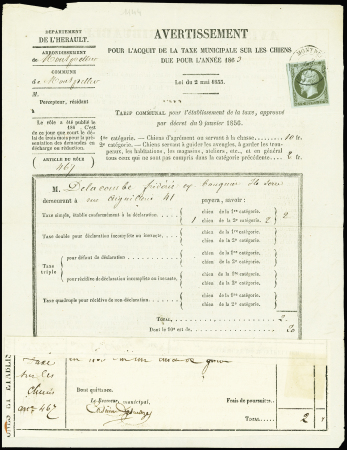 DÉPARTEMENT
DE L'HÉRAULT.
ARRONDISSEMENT
de Montpellier
COMMUNE
de Montpellier
M.
Percepteur, résident
à
AVERTISSEMENT
POUR L'ACQUIT DE LA TAXE MUNICIPALE SUR LES CHIENS
DUE POUR L'ANNÉE 1863
Loi du 2 mai 1855.
Le rôle a été publié le
186 . C'est de
ce jour que court le délai
de trois mois pour la présentation
des demandes en
décharge ou réduction.
ARTICLE DU RÔLE
467
TARIF COMMUNAL pour l'établissement de la taxe, approuvé
par décret du 9 janvier 1856.
1re catégorie. - Chiens d'agrément ou servant à la chasse 10 fr.
2e catégorie. - Chiens servant à guider les aveugles, à garder les troupeaux,
les habitations, les magasins, ateliers, etc., et en général
tous ceux qui ne sont pas compris dans la catégorie précédente. 2 fr.
M. Delacombe
demeurant à rue aiguillerie 41 payera, savoir :
Taxe simple, établie conformément à la déclaration. chien de la 1re catégorie.
1 chien de la 2e catégorie. 2 2
Taxe double pour déclaration incomplète ou inexacte. chien de la 1re catégorie.
chien de la 2e catégorie.
Taxe triple
pour défaut de déclaration chien de la 1re catégorie.
chien de la 2e catégorie.
pour récidive de déclaration incomplète ou inexacte. chien de la 1re catégorie.
chien de la 2e catégorie.
Taxe quadruple pour récidive de non déclaration chien de la 1re catégorie.
chien de la 2e catégorie.
TOTAL. 2
Dont le 10e est de. 20
Taxe
sur les
Chiens
art 467
Dont quittance.
Le Receveur municipal.
Frais de poursuite.
TOTAL. 2